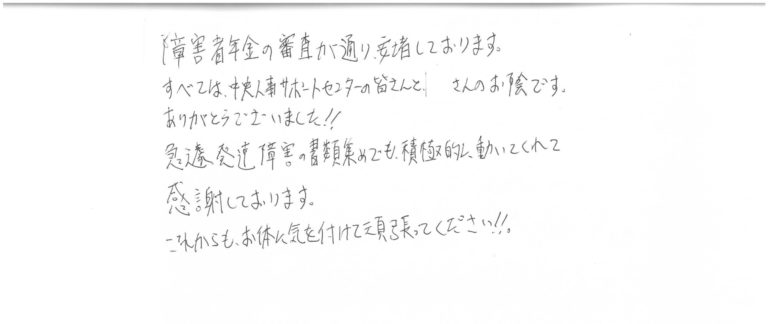 障害者年金の審査が通り、安堵しております。
すべては、中央人事サポートセンターの皆さんと、 さんのお陰です。
ありがとうございました!!
急遽発達障害の書類集めでも、積極的に動いてくれて
感謝しております。
これからも、お体に気を付けて頑張ってください!!。